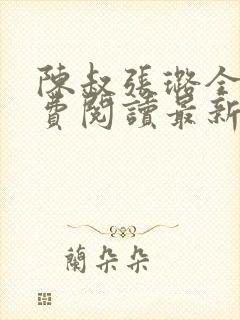 陳叔張璐全
費閱讀最新
蘭朵朵